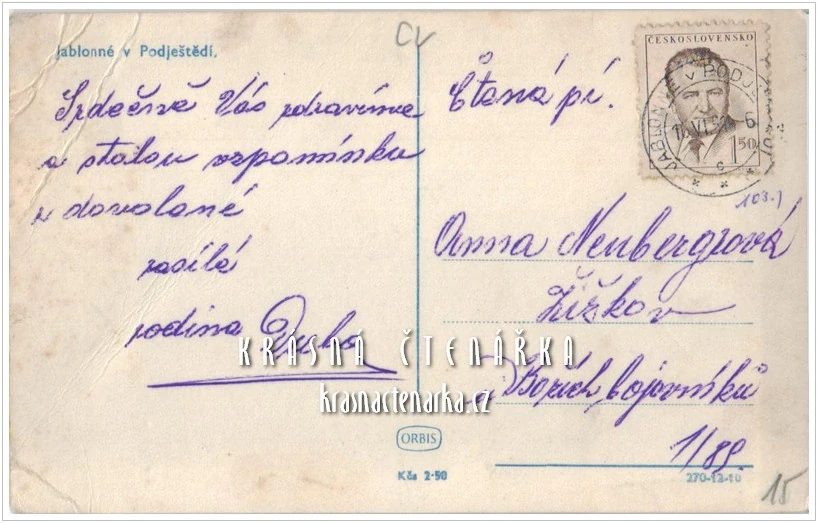 Jablonné v Podještědí.
CV
Srdečně Vás zdravíme
a stalou vzpomínku
z dovolané
zasílá
rodina
Ctěná pí.
ČESKOSLOVENSKO
1.50
JABLONNÉ V PODJ
6
c
103.)
Anna Neubergrová
Žižkov
Božích bojovníků
1/89.
KRÁSNÁ ČTENÁŘKA
krasnactenarka.cz
ORBIS
Kčs 2·50
270-12-10
15